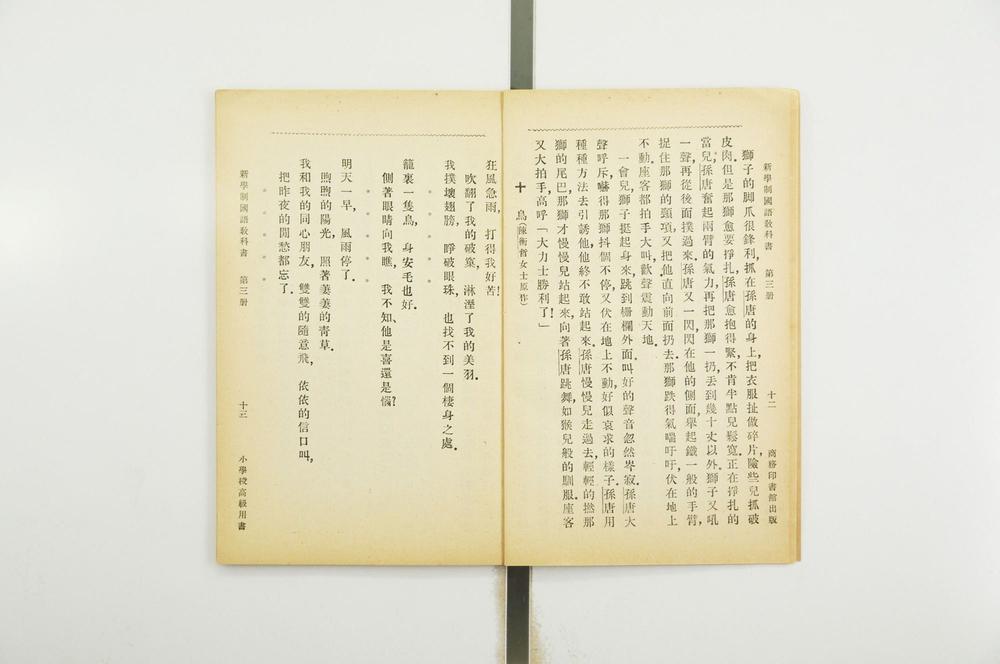 新學制國語敎科書 第三册 十二 商務印書館出版
獅子的脚爪很鋒利,抓在孫唐的身上,把衣服扯做碎片,險些兒抓破
皮肉.但是那獅愈要掙扎,孫唐愈抱得緊,不肯半點兒鬆寬.正在掙扎的
當兒,孫唐奮起兩臂的氣力,再把那獅一扔,丟到幾十丈以外.獅子又吼
一聲,再從後面撲過來.孫唐又一閃,閃在他的側面,舉起鐵一般的手臂,
捉住那獅的頸項,又把他直向前面扔去.那獅跌得氣喘吁吁,伏在地上
不動.座客都拍手大叫,歡聲震動天地.
一會兒,獅子挺起身來,跳到柵欄外面.叫好的聲音忽然岑寂.孫唐大
聲呼斥,嚇得那獅抖個不停,又伏在地上不動,好似哀求的樣子.孫唐用
種種方法去引誘他,他終不敢站起來.孫唐慢慢兒走過去,輕輕的撚那
獅的尾巴,那獅才慢慢兒站起來,向著孫唐跳舞,如猴兒般的馴服.座客
又大拍手,高呼「大力士勝利了!」
十 鳥(陳衡哲女士原作)
狂風急雨, 打得我好苦!
吹翻了我的破窠, 淋溼了我的美羽.
我撲壞翅膀, 睜破眼珠, 也找不到一個棲身之處.
籠裏一隻鳥, 身安毛也好.
側著眼睛向我瞧, 我不知他是喜還是惱?
明天一早, 風雨停了.
煦煦的陽光, 照著萋萋的青草.
我和我的同心朋友, 雙雙的隨意飛, 依依的信口叫,
把昨夜的閒愁都忘了.
新學制國語敎科書 第三册 十三 小學校高級用書